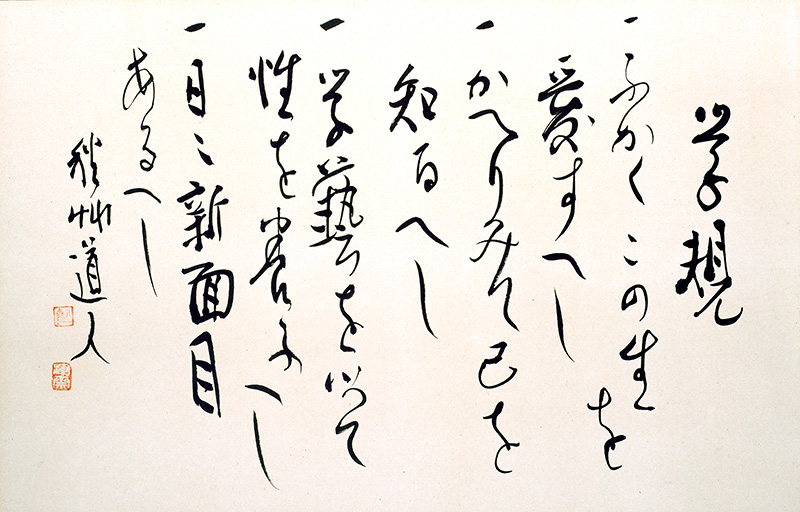 学規
一ふかくこの生を
愛すへし
一かへりみて己を
知るへし
一学藝を以て
性を養ふへし
一日々新面目
あるへし
秋艸道人